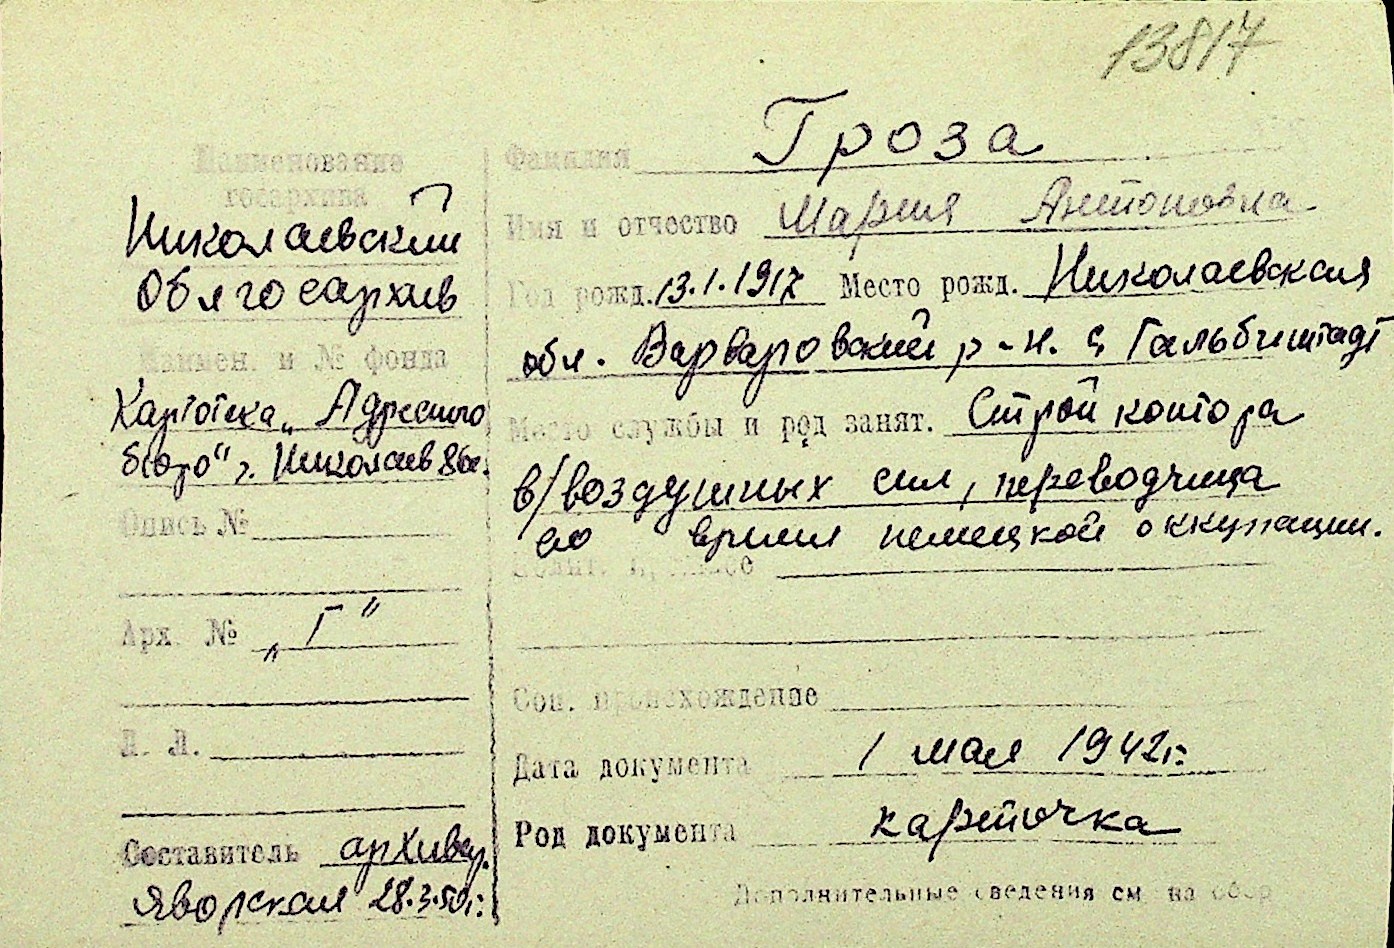 13817
Наименование
госархива
Николаевский
Облгосархив
Наимен. и № фонда
Картотека „Адресного
бюро" г. Николаев
Опись №
Арх. № „Г"
Л. Л.
Составитель архивар.
Яворская 28.3.50г.
Фамилия Гроза
Имя и отчество Мария Антоновна
Год рожд. 13.1.1917 Место рожд. Николаевская
обл. Варваровский р-н. с. Гальбштадт
Место службы и род занят. Строй контора
в/воздушных сил, переводчица
во время немецкой оккупации.
Соц. происхождение
Дата документа 1 мая 1942г.
Род документа карточка
Дополнительные сведения см. на обор